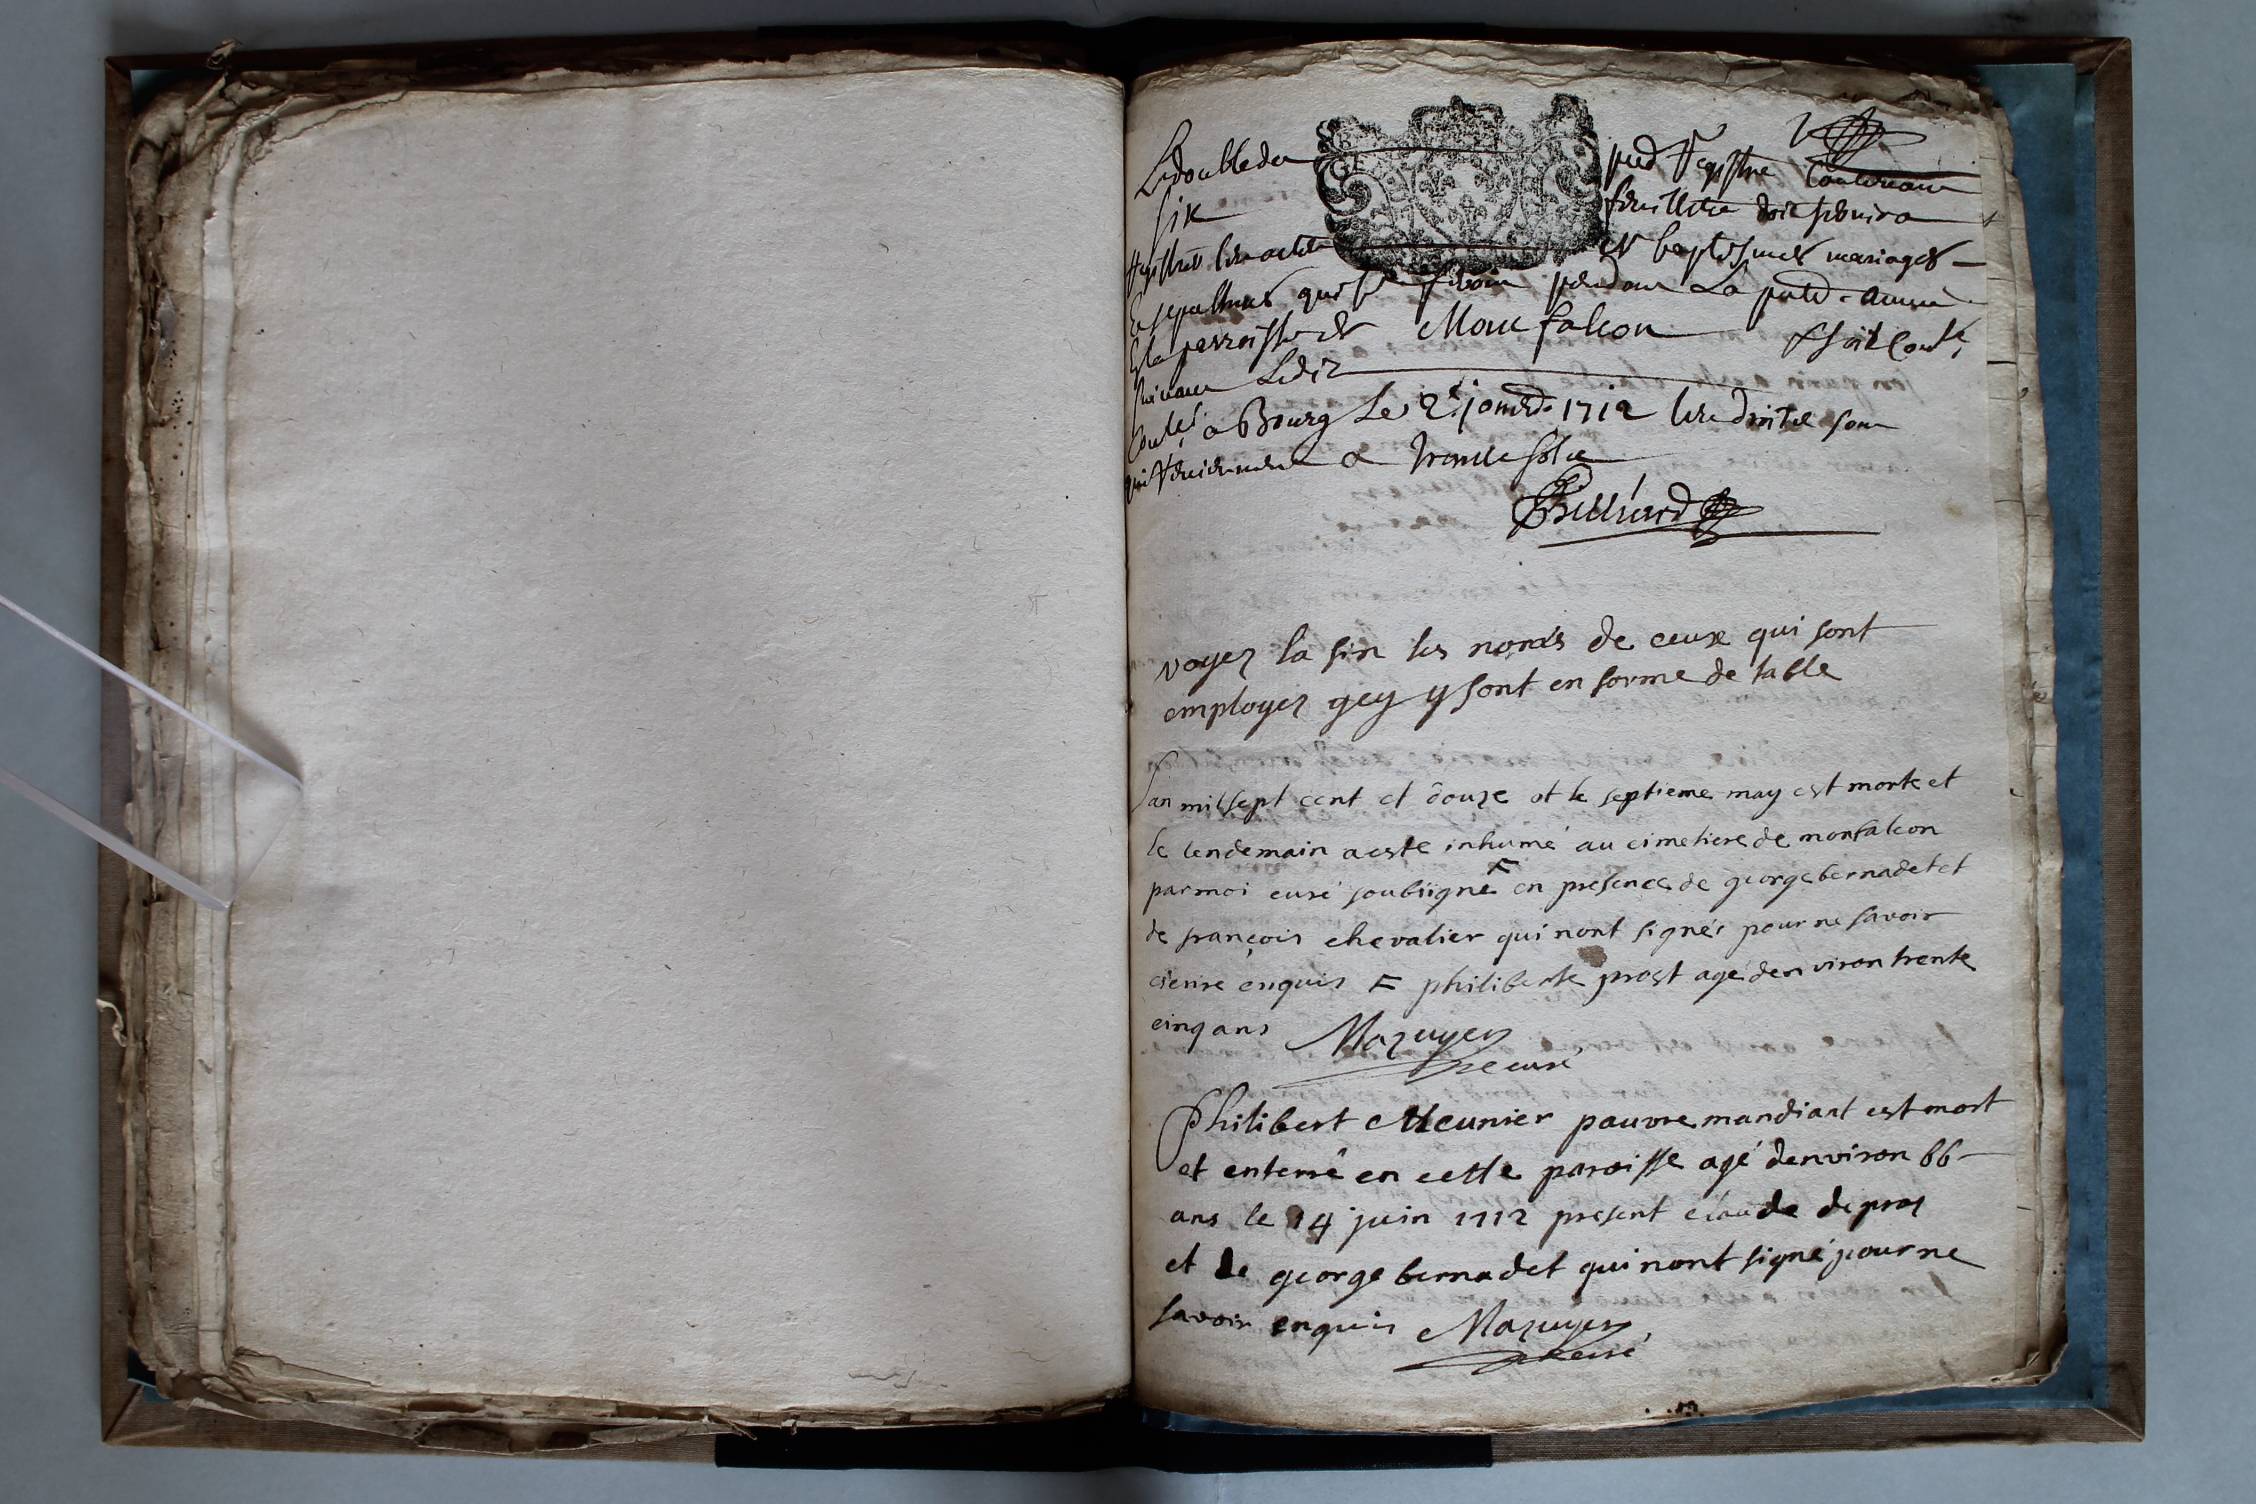 Le double du pnt Registre Contenant
six feuilletz doit servir a
Registrer les actes de baptesmes mariages
Et sepultures qui se feront pendant La pnte année
En la parroisse de Montfalcon
suivant L'edit
a Bourg Le 2e janvr 1712 les droitz sont
a trente solz
Billiard
voyez la fin les noms de ceux qui sont
employez icy y sont en forme de table
Lan mil sept cent et douze et le septieme may est morte et
le lendemain a este inhumé au cimetiere de monfalcon
par moi curé soubsigné F en presence de george bernadet et
de françois chevalier qui nont signés pour ne savoir
enquis F philiberte prost agé denviron trente
cinq ans Mazuyer
curé
Philibert Meunier pauvre mandiant est mort
et enterré en cette paroisse agé denviron 66
ans le 14 juin 1712 present claude depras
et de george bernadet qui nont signé pour ne
savoir enquis Mazuyer
curé